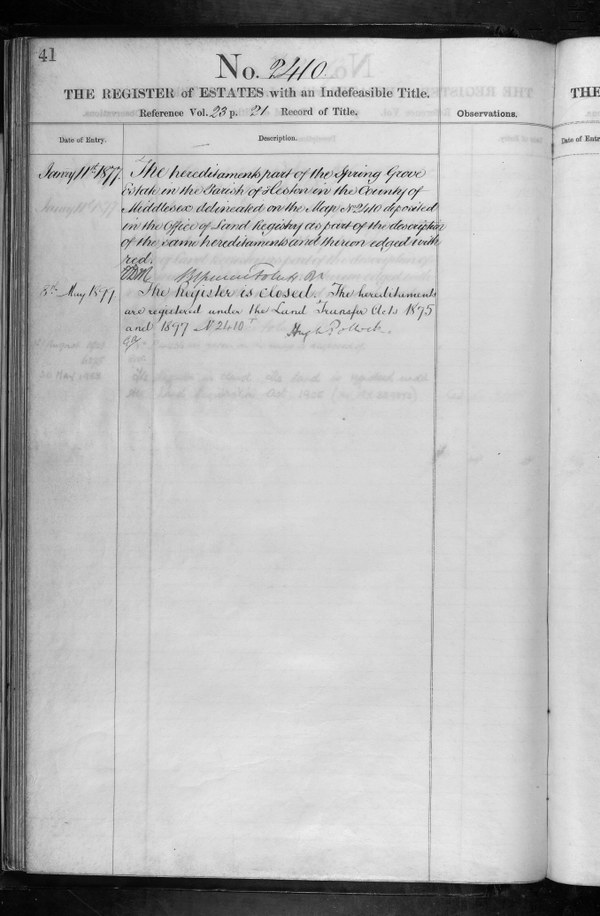 41
No. 2410.
THE REGISTER of ESTATES with an Indefeasible Title.
Reference Vol. 23 p. 21 Record of Title.
Observations.
Date of Entry.
Description.
11th 1877.
The hereditaments part of the Spring Grove
Estate in the Parish of Heston in the County of
Middlesex delineated on the Map No 2410 deposited
in the Office of Land Registry as part of the description
of the same hereditaments and thereon edged with
red.
8th May 1899
The Register is closed. The hereditaments
are registered under the Land Transfer Acts 1875
and 1897 No 2410
Hugh Pollock
THE
Date of Entr